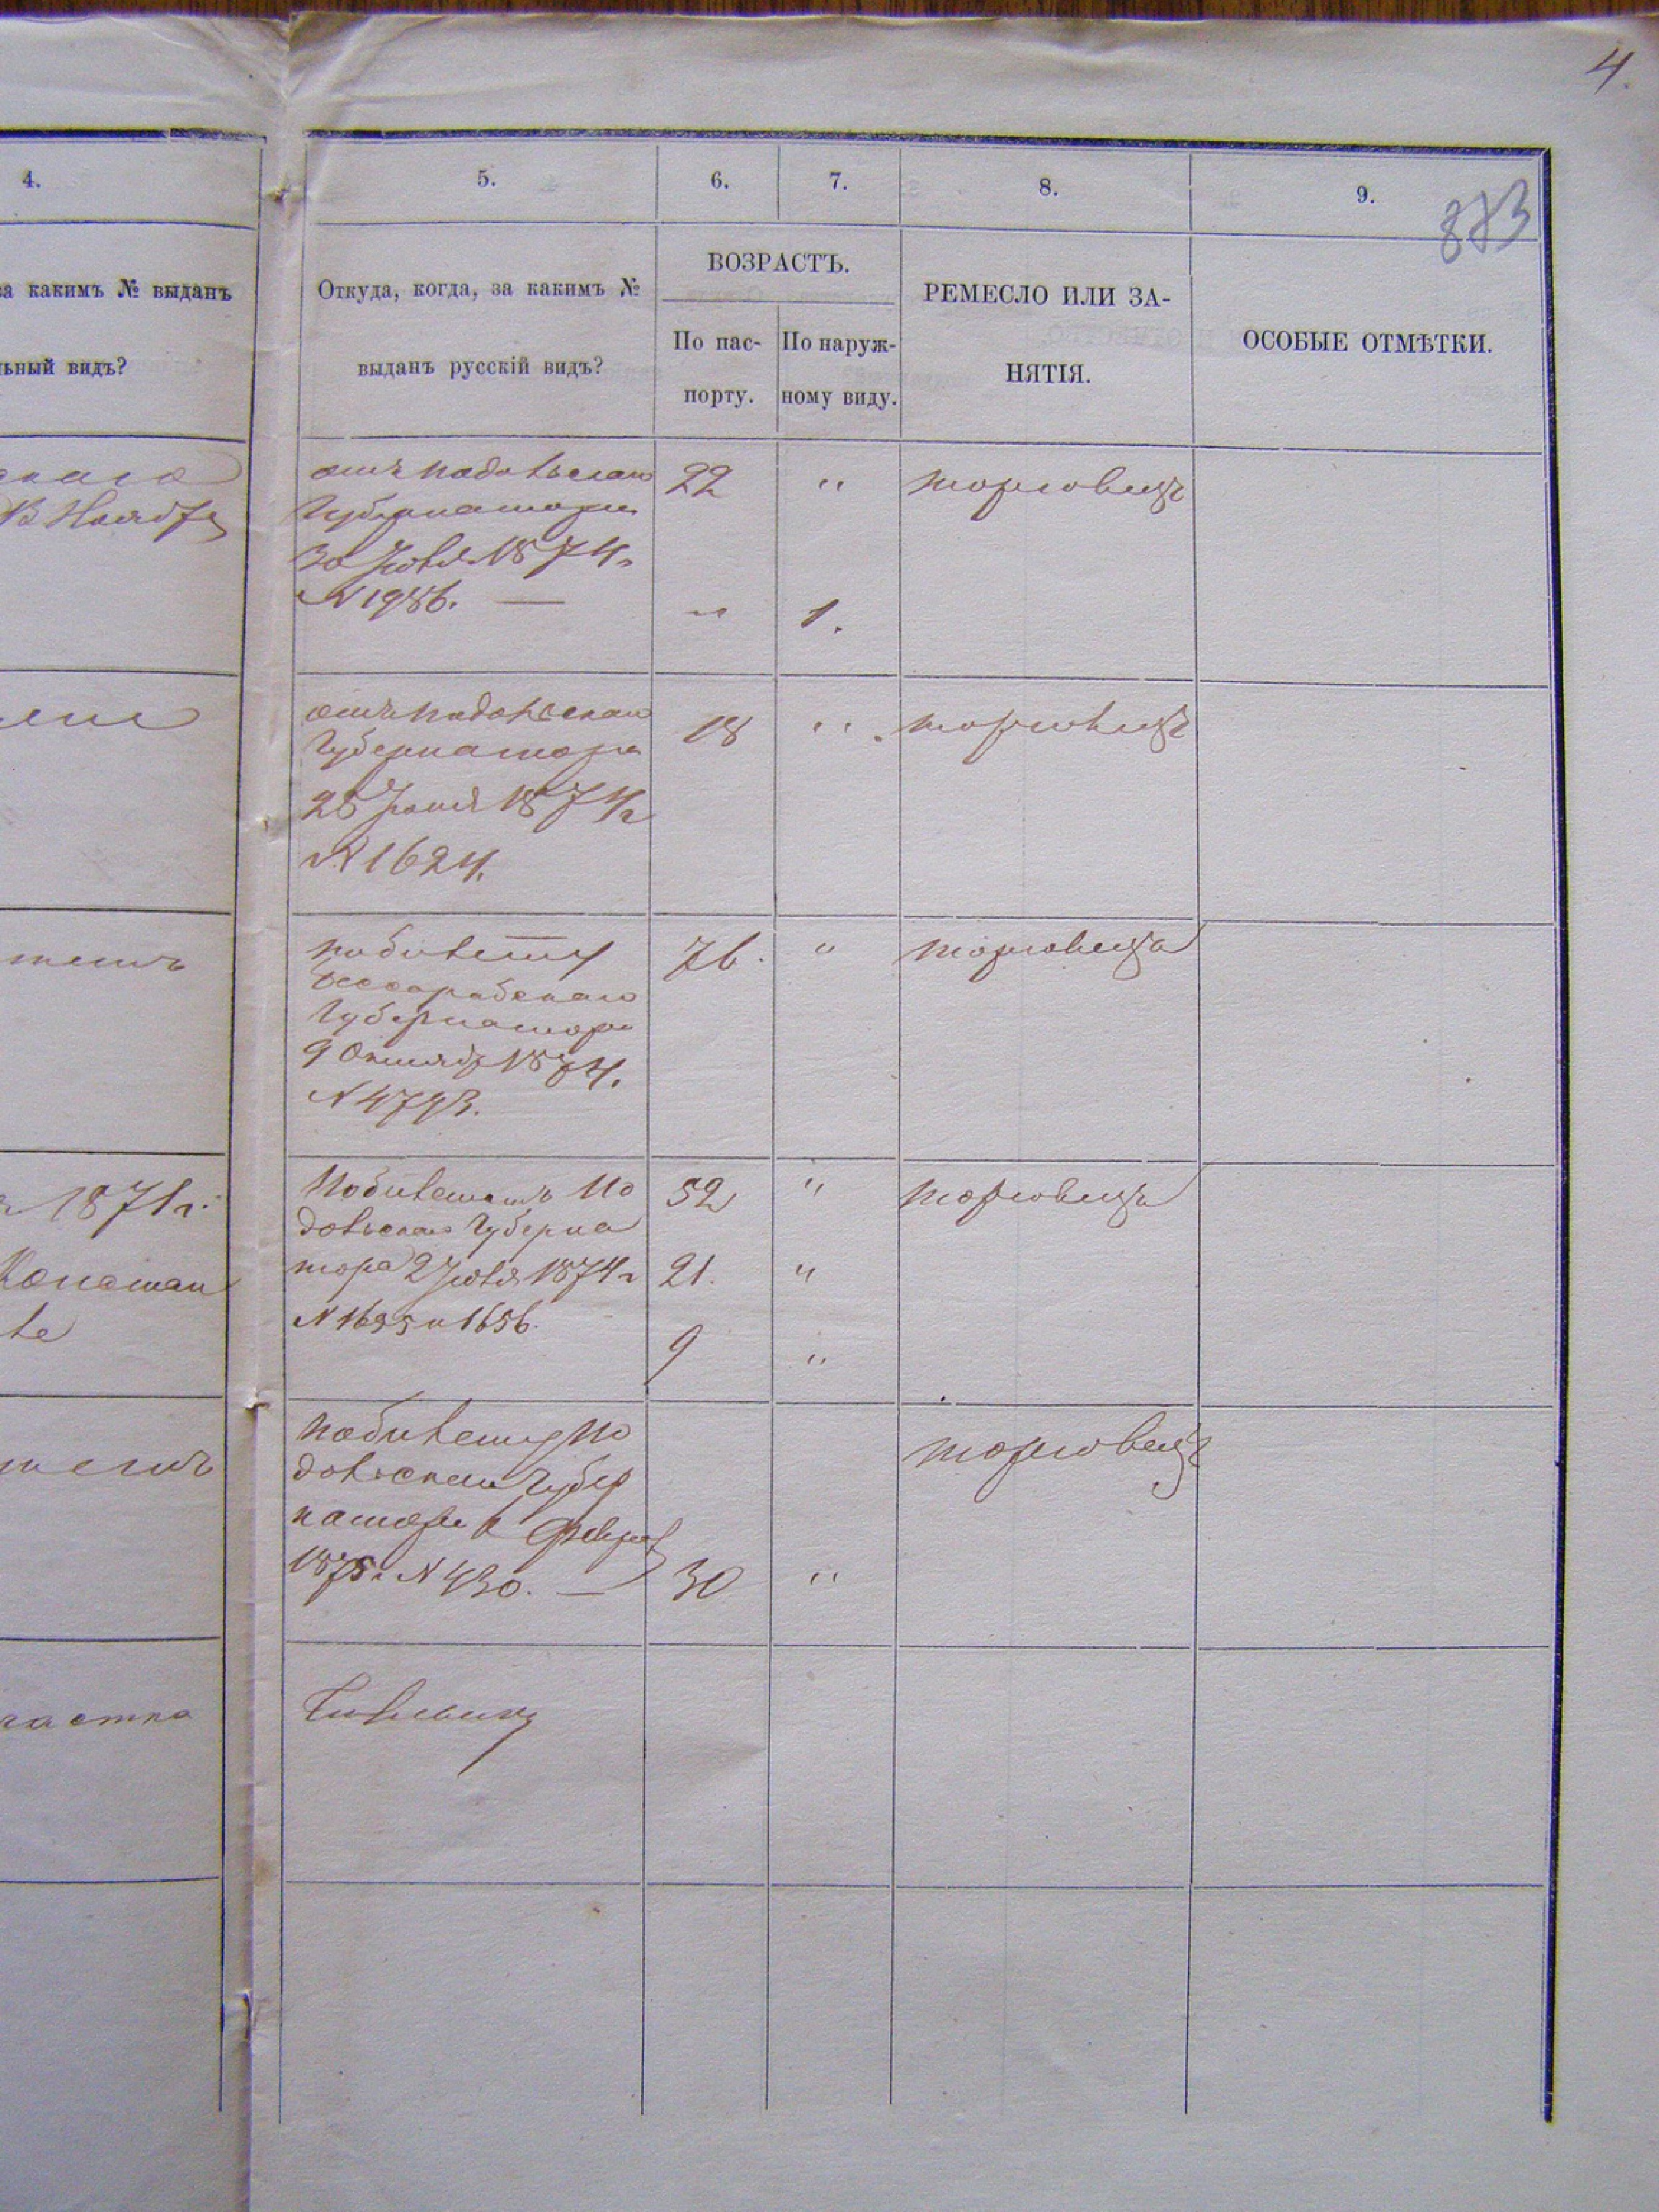 4.
4.
5.
6.
7.
8.
9.
873
за какимъ № выданъ
ьный видъ?
Откуда, когда, за какимъ №
выданъ русскій видъ?
ВОЗРАСТЪ.
По пас-
порту.
По наруж-
ному виду.
РЕМЕСЛО ИЛИ ЗА-
НЯТІЯ.
ОСОБЫЕ ОТМѢТКИ.
скаго
13 Ноября
отъ Подольскаго
Губернатора
30 Іюля 1874 г
N 1986. —
22
"
торговецъ
"
1.
отъ Подольскаго
Губернатора
28 Іюня 1874 г
N 1624.
18
"
торговецъ
по билету
Бессарабскаго
Губернатора
9 Октября 1874.
N 4793.
76.
"
торговецъ
1871 г.
Констан
ле
По билетамъ По
дольскаго Губерна
тора 2 Іюля 1874 г
N 1655 и 1656.
52
"
торговецъ
21.
"
9
"
по билету По
дольскаго Губер
натора 6 Февраля
1875 г. N 430. —
30
"
торговецъ
частка